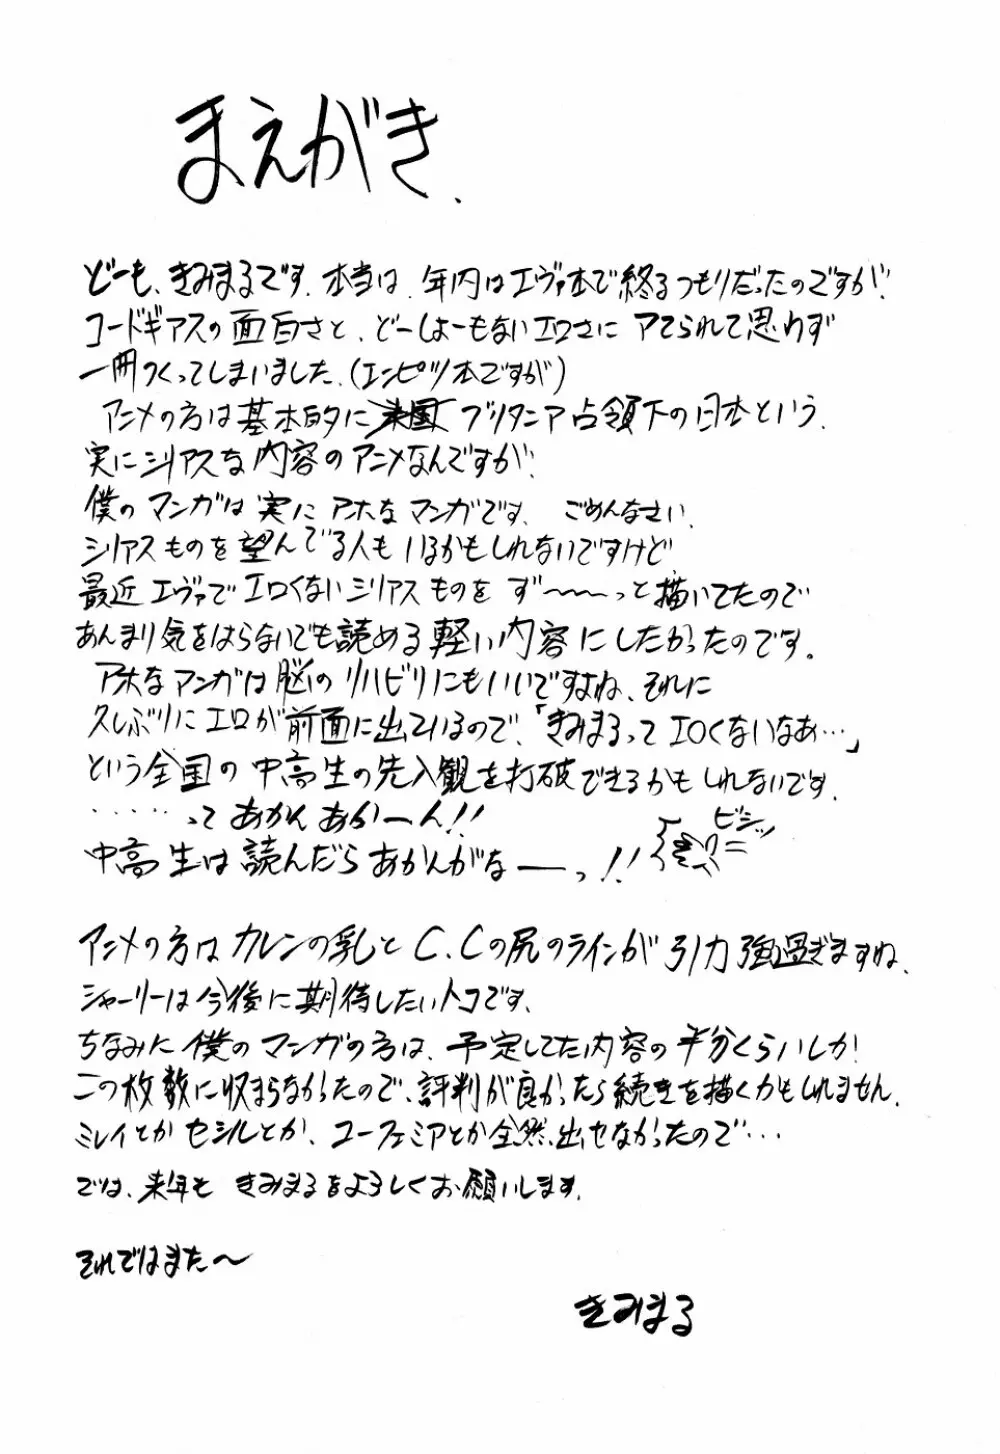 まえがき.
どーも、きみまるです. 本当は、年内はエヴァ本で終るつもりだったのですが、
コードギアスの面白さと、どーしよーもないエロさに アてられて思わず
一冊つくってしまいました.(エンピツ本ですが)
アニメの方は基本的に米国ブリタニア占領下の日本という、
実にシリアスな内容のアニメなんですが、
僕のマンガは実にアホなマンガです. ごめんなさい.
シリアスものを望んでる人もいるかもしれないですけど
最近エヴァでエロくないシリアスものを ず〜〜〜っと描いてたので
あんまり気をはらないでも読める軽い内容にしたかったのです。
アホなマンガは脳のリハビリにもいいですよね、それに
久しぶりにエロが前面に出ているので、「きみまるってエロくないなあ…」
という全国の中高生の先入観を打破できるかもしれないです.
・・・・・ってあかんあかーん!!
ビシッ
き
中高生は読んだらあかんがなーっ!!
アニメの方はカレンの乳とC.Cの尻のラインが引力強過ぎますね.
シャーリーは今後に期待したいトコです.
ちなみに僕のマンガの方は、予定してた内容の半分くらいしか
この枚数に収まらなかったので、評判が良かったら続きを描くかもしれません.
ミレイとかセシルとか、ユーフェミアとか全然、出せなかったので…
では、来年も きみまるをよろしくお願いします.
それではまた〜
きみまる